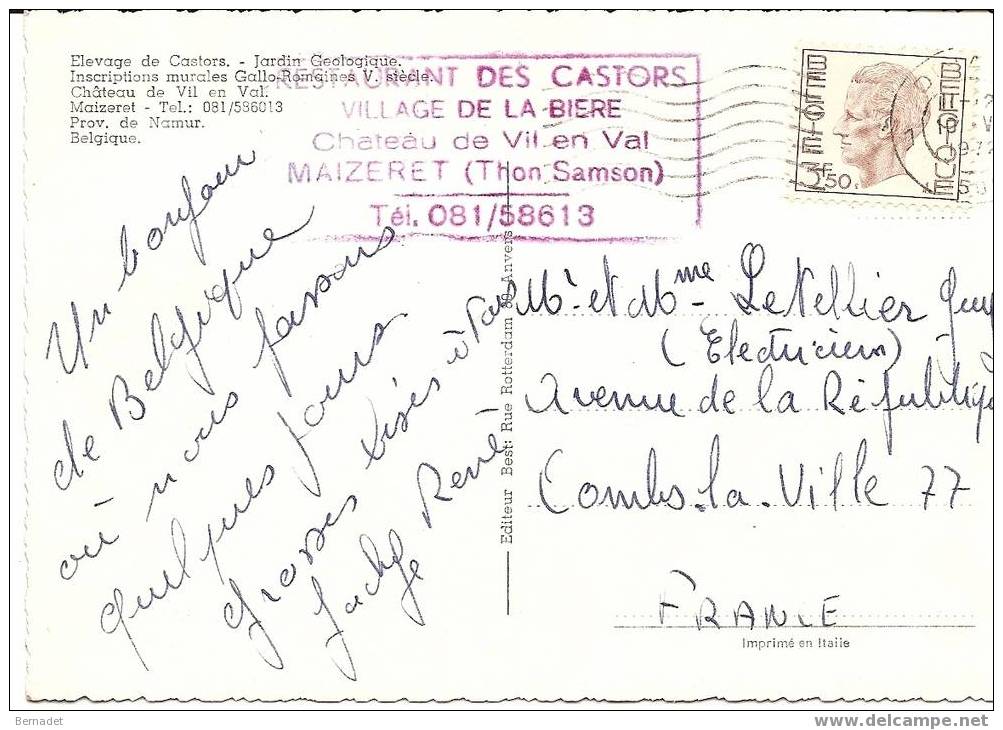 Elevage de Castors. - Jardin Geologique.
Inscriptions murales Gallo-Romaines V. siècle.
Château de Vil en Val.
Maizeret - Tel.: 081/586013
Prov. de Namur.
Belgique.
RESTAURANT DES CASTORS
VILLAGE DE LA BIERE
Chateau de Vil en Val
MAIZERET (Thon Samson)
Tél. 081/58613
BELGIE
BELGIQUE
3F50
Un bonjour
de Belgique
où nous passons
quelques jours
Grosses bises à tous
René
Editeur Best: Rue Rotterdam 89 Anvers
Mr et Mme Letellier Guy
(Electricien)
Avenue de la République
Combs.la.Ville 77
FRANCE
Imprimé en Italie
Bernadet
www.delcampe.net